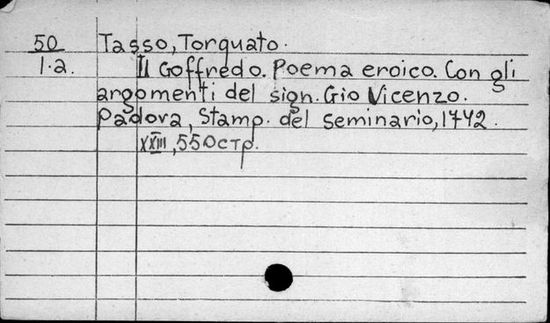 50 Tasso, Torquato.
1.2. Il Goffredo. Poema eroico. Con gli
argomenti del sign. Gio Vicenzo.
Padova, Stamp. del Seminario, 1742.
XXIII, 550стр.